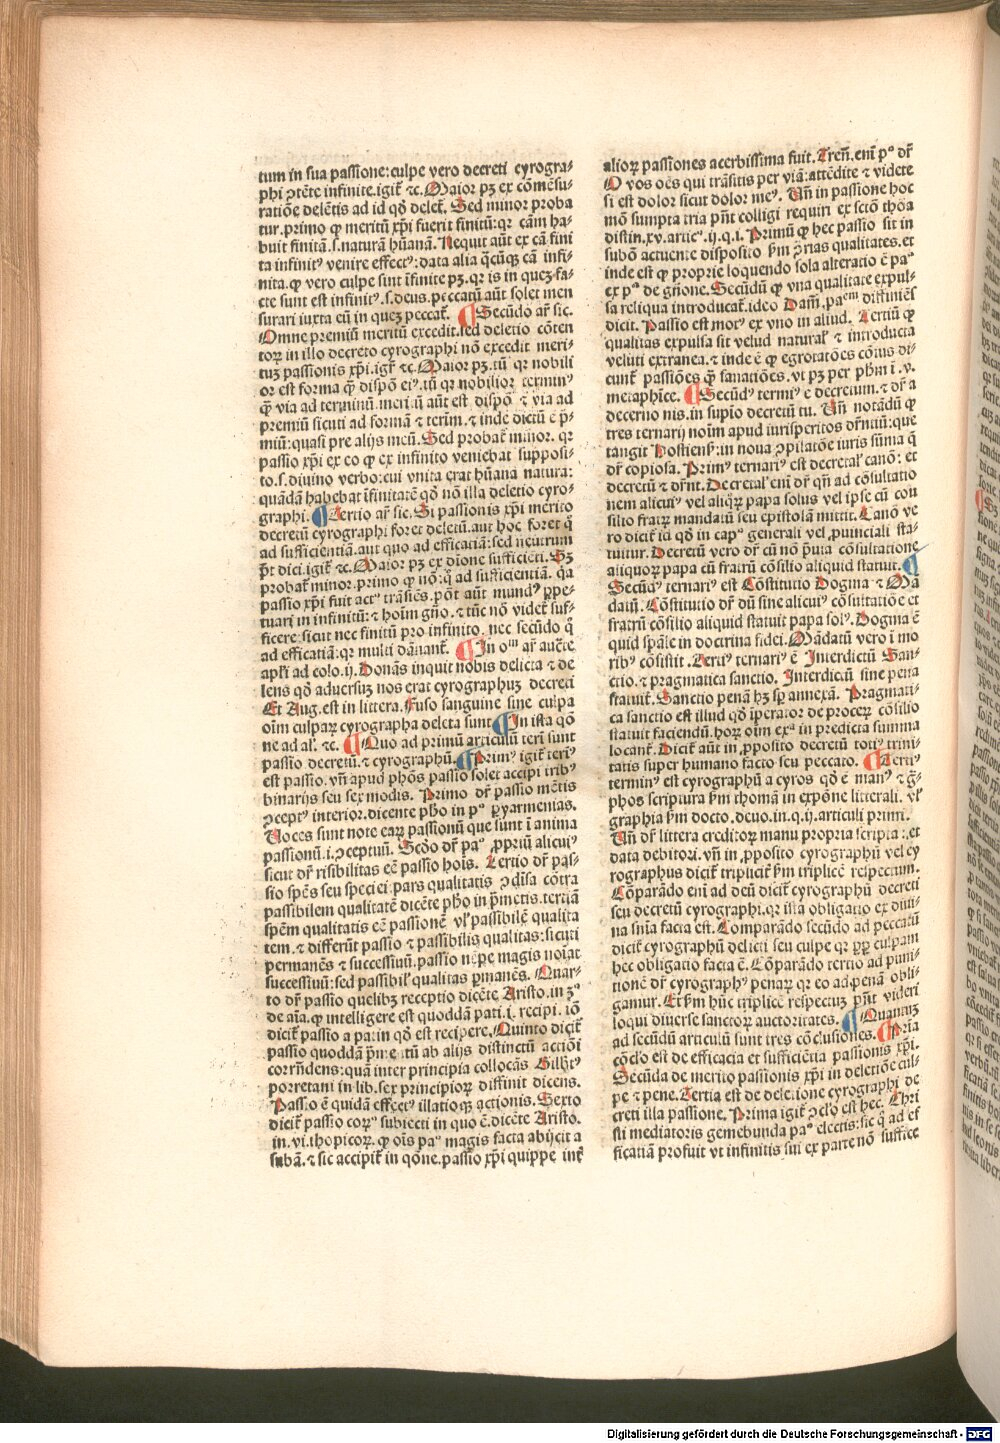 tum in sua passione: culpe vero decreti cyrogra⸗
phi ↄtēte infinite. igit̄ ⁊c. Maior pꝫ ex cōmēsu⸗
ratiōe delētis ad id qd̄ delet̄. Sed minor proba
tur. primo ꝙ meritū xp̄i fuerit finitū: qr cām ha⸗
buit finitā. s. naturā hūanā. Nequit aūt ex cā fini
ta infinitꝰ venire effectꝰ: data alia q̄cūqꝫ cā infi⸗
nita. ꝙ vero culpe sint īfinite pꝫ. qr is in quez fa⸗
cte sunt est infinitꝰ. s. deus. peccatū aūt solet men
surari iuxta eū in quez peccat̄. ¶ Secūdo ar̄ sic.
Omne premiū meritū excedit. sed deletio cōten
toꝝ in illo decreto cyrographi nō excedit meri⸗
tuꝫ passionis xp̄i. igit̄ ⁊c. Maior pꝫ. tū qr nobili
or est forma ꝙ̄ dispō eiꝰ. tū qr nobilior terminꝰ
ꝙ̄ via ad terminū. meritū aūt est dispō ⁊ via ad
premiū sicuti ad formā ⁊ terīm. ⁊ inde dictū ē p̄⸗
miū: quasi pre alijs meū. Sed probat̄ minor. qr
passio xp̄i ex eo ꝙ ex infinito veniebat supposi⸗
to. s. diuino verbo: cui vnita erat hūana natura:
quādā habebat īfinitatē qd̄ nō illa deletio cyro⸗
graphi. ¶ Tertio ar̄ sic. Si passionis xp̄i merito
decretū cyrographi foret deletū. aut hoc foret q̊
ad sufficientiā. aut quo ad efficaciā: sed neutrum
pt̄ dici. igit̄ ⁊c. Maior pꝫ ex diōne sufficiēti. Sꝫ
probat̄ minor. primo ꝙ nō: q̊ ad sufficientiā. qa
passio xp̄i fuit actꝰ trāsiēs. pōt aūt mundꝰ ꝑpe⸗
tuari in infinitū: ⁊ hoim gn̄o. ⁊ tūc nō videt̄ suf⸗
ficere: sicut nec finitū pro infinito. nec secūdo q̊
ad efficatiā: qr multi dānant̄. ¶ In oᵐ ar̄ auc̄te
apl̄i ad colo. ij. Donās inquit nobis delicta ⁊ de
lens qd̄ aduersuꝫ nos erat cyrographuꝫ decreti
Et Aug. est in littera. Fuso sanguine sine culpa
oīm culpaꝝ cyrographa deleta sunt ¶ In ista qō
ne ad al̄. ⁊c. ¶ Quo ad primū articulū teri sunt
passio. decretū. ⁊ cyrographū. ¶ Primꝰ igit̄ teriꝰ
est passio. vn̄ apud phōs passio solet accipi tribꝰ
binarijs seu sex modis. Primo dr̄ passio mētis
ↄceptꝰ interior. dicente pho in p° ꝑyarmenias.
Uoces sunt note eaꝝ passionū que sunt ī anima
passionū. i. ↄceptuū. Scd̄o dr̄ pa° ꝓpriū alicuiꝰ
sicut dr̄ risibilitas eē passio hois. Tertio dr̄ pas⸗
sio spēs seu species pars qualitatis ↄdīsa cōtra
passibilem qualitatē dicēte pho in p̄metis. tertiā
spēm qualitatis eē passionē vl̓ passibilē qualita
tem. ⁊ differūt passio ⁊ passibilis qualitas: sicuti
permanēs ⁊ successiuū. passio nēpe magis noīat
successiuū: sed passibil̓ qualitas ꝑmanēs. Quar⸗
to dr̄ passio quelibꝫ receptio dicēte Aristo. in 3°
de aīa. ꝙ intelligere est quoddā pati. i. recipi. iō
dicit̄ passio a patin qd̄ est recipere. Quinto dicit̄
passio quoddā p̄mētū ab alijs distinctū actiōi
corrn̄dens: quā inter principia collocās Gilb̄tꝰ
porretani in lib. sex principioꝝ diffinit dicens.
Passio ē quidā effectꝰ illatioqꝫ actionis. Sexto
dicit̄ passio corꝰ subiecti in quo ē. dicēte Aristo.
in. vi. thopicoꝝ. ꝙ oīs pa° magis facta abijcit a
subā. ⁊ sic accipit̄ in qōne. passio xp̄i quippe int̄
alioꝝ passiones acerbissima fuit. Tren̄. enī p° dr̄
O vos oēs qui trāsitis per viā: attēdite ⁊ videte
si est dolor sicut dolor meꝰ. Un̄ in passione hoc
mō sumpta tria pn̄t colligi requiri ex sctō thōa
distin. xv. articꝰ. ij. q. i. Primū ꝙ hec passio sit in
subō actuente disposito scd̄m ↄ̄rias qualitates. et
inde est ꝙ proprie loquendo sola alteratio ē pa°
ex p° de gn̄one. Secūdū ꝙ vna qualitate expul⸗
sa reliqua introducat̄. ideo Dam̄. paᵉᵐ diffiniēs
dicit. Passio est motꝰ ex vno in aliud. Tertiū ꝙ
qualitas expulsa sit velud natural̓ ⁊ introducta
veluti extranea. ⁊ inde ē ꝙ egrotatōes cōius di⸗
cunt̄ passiōes ꝙ̄ sanatiōes. vt pꝫ per phm̄ ī. v.
metaphice. ¶ Secūdꝰ termiꝰ ē decretum. ⁊ dr̄ a
decerno nis. in supio decretū tu. Un̄ notādū ꝙ
tres ternarij noīm apud iurisperitos dr̄ntiū: que
tangit Hostiens̄: in noua ↄpilatōe iuris sūma q̄
dr̄ copiosa. Primꝰ ternariꝰ est decretal̓ canō: et
decretū ⁊ dr̄nt. Decretal̓ enī dr̄ qn̄ ad cōsultatio
nem alicuiꝰ vel alioꝝ papa solus vel ipse cū con
silio fratꝝ mandatū seu epistolā mittit. Canō ve
ro dicit̄ id qd̄ in cap° generali vel ꝓuinciali sta⸗
tuitur. Decretū vero dr̄ cū nō p̄uia cōsultatione
aliquoꝝ papa cū fratrū cōsilio aliquid statuit. ¶
Secūdꝰ ternariꝰ est Cōstitutio Dogma ⁊ Mā
datū. Cōstitutio dr̄ dū sine alicuiꝰ cōsultatiōe et
fratrū cōsilio aliquid statuit papa solꝰ. Dogma ē
quid spāle in doctrina fidei. Mādatū vero ī mo
ribꝰ cōsistit. Tertiꝰ ternariꝰ ē Interdictū San⸗
ctio. ⁊ pragmatica sanctio. Interdictū sine pena
statuit̄. Sanctio penā hꝫ sp̄ annexā. Pragmati⸗
ca sanctio est illud qd̄ īperator de proceꝝ cōsilio
statuit faciendū. hoꝝ oīm exᵃ in predicta summa
locant̄. Dicit̄ aūt in ꝓposito decretū totiꝰ trini⸗
tatis super humano facto seu peccato. ¶ Tertiꝰ
terminꝰ est cyrographū a cyros qd̄ ē manꝰ ⁊ ḡ⸗
phos scriptura scd̄m thomā in expōne litterali. vl̓
graphia scd̄m docto. deuo. in. q. ij. articuli primi.
Un̄ dr̄ littera creditoꝝ manu propria scripta: et
data debitori. vn̄ in ꝓposito cyrographū vel cy
rographus dicit̄ triplicit̄ scd̄m triplicē respectum.
Cōparādo enī ad deū dicit̄ cyrographū decreti
seu decretū cyrographi. qr illa obligatio ex diui⸗
na sn̄ia facta est. Comparādo secūdo ad peccatū
dicit̄ cyrographū delicti seu culpe qr ꝓp̄ culpam
hec obligatio facta ē. Cōparādo tertio ad puni⸗
tionē dr̄ cyrographꝰ penaꝝ qr eo ad penā obli⸗
gamur. Et scd̄m hūc triplicē respectuꝫ pn̄t videri
loqui diuerse sanctoꝝ auctoritates. ¶ Quantuꝫ
ad secūdū articulū sunt tres cōclusiones. ¶ Pria
cōclo est de efficacia et sufficiētia passionis xp̄i.
Secūda de merito passionis xp̄i in deletiōe cul⸗
pe ⁊ pene. Tertia est de deletione cyrographi de
creti illa passione. Prima igit̄ ↄclo est hec. Chri
sti mediatoris gemebunda pa° electis: sic q̊ ad ef
ficatiā profuit vt infinitis sui ex parte nō suffice
Digitalisierung gefördert durch die Deutsche Forschungsgemeinschaft - DFG